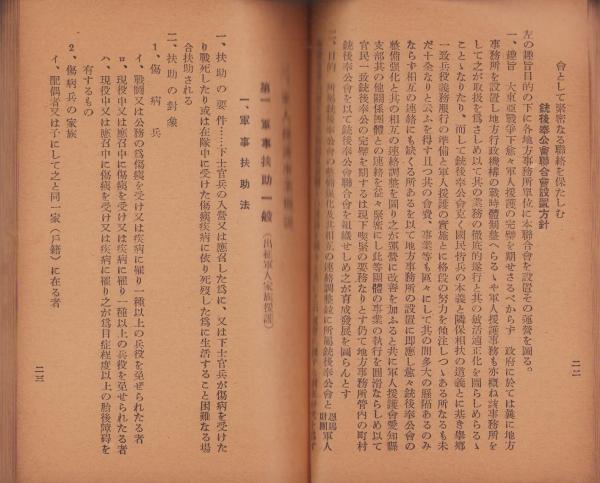 會として緊密なる聯絡を保たしむ
銃後奉公會聯合會設置方針
左の趣旨目的の下に各地方事務所單位に本聯合會を設置その運營を圖る。
一、趣旨 大東亞戰爭下愈々軍人援護の完璧を期せざるべからず 政府に於ては曩に地方
事務所を設置し地方行政機構の戰時體制整へらるゝや軍人援護事務も亦概ね該事務所を
して之が取扱を爲さしめ以て其の業務の徹底的遂行と其の敏活適正化を圖らしめらるゝ
こととなりたり、而して銃後奉公會克く國民皆兵の本義と隣保相扶の道義とに基き擧鄕
一致兵役義務服行の準備と軍人援護の實施とに格段の努力を傾注しつゝある所なるも未
だ十全なりと云ふを得ず且つ其の會費、事業等も區々にして其の間多大の懸隔あるのみ
ならず相互の連絡にも缺くる所あるを以て地方事務所の設置に即應し愈々銃後奉公會の
整備强化と其の相互の連絡調整を圖り之が運營に改善を加ふると共に軍人援護會愛知縣
支部其の他關係團體との連絡を益々緊密にし此等團體の事業の執行を圓滑ならしめ以て
官民一致銃後奉公の完璧を期するは現下喫緊の要務なりとす仍て地方事務所管內の町村
銃後奉公會を以て銃後奉公會聯合會を組織せしめ之が育成發展を圖らんとす
二、目的 所屬銃後奉公會の整備强化及其の相互の連絡調整竝に所屬銃後奉公會と恩賜財團軍人
二二
第一 軍事扶助一般(出征軍人家族援護)
一、軍事扶助法
一、扶助の要件……下士官兵の入營又は應召した爲に、又は下士官兵が傷病を受けた
り戰死したり或は在隊中に受けた傷痍疾病に依り死歿した爲に生活すること困難なる場
合扶助される
二、扶助の對象
1、傷病兵
イ、戰鬪又は公務の爲傷痍を受け又は疾病に罹り一種以上の兵役を免ぜられたる者
ロ、現役中又は應召中に傷痍を受け又は疾病に罹り一種以上の兵役を免ぜられたる者
ハ、現役中又は應召中に傷痍を受け又は疾病に罹り之が爲目症程度以上の胎後障碍を
有するもの
2、傷病兵の家族
イ、配偶者又は子にして之と同一家(戶籍)に在る者
二三